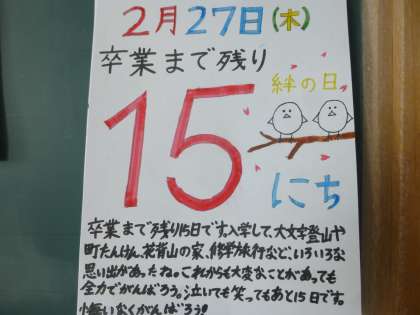 2月27日(木)
卒業まで残り
絆の日
15
にち
卒業まで残り15日です。入学して、大文字登山や
町たんけん、花背山の家、修学旅行など、いろいろな
思い出があったね。これからも大変なことがあっても
全力でがんばろう。泣いても笑ってもあと15日です。
悔いなくがんばろう!